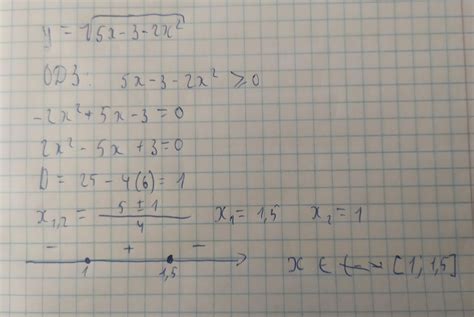 y = √(5x-3-2x²)
ОДЗ: 5x-3-2x² ≥ 0
-2x²+5x-3=0
2x²-5x+3=0
D = 25-4(6)=1
x₁,₂ = (5 ± 1)/4 x₁=1,5 x₂=1
- + -
1 1,5
x ∈ [1; 1,5]